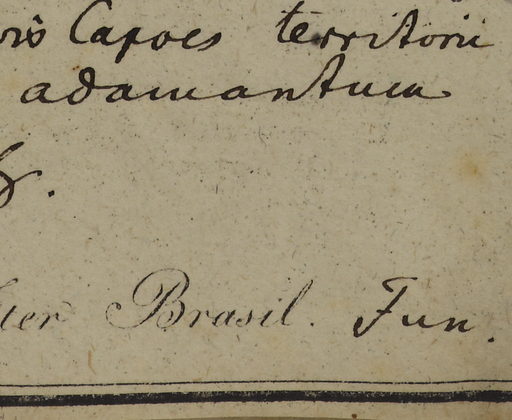 Capões territorii
adamantum
Brasil. Jun.